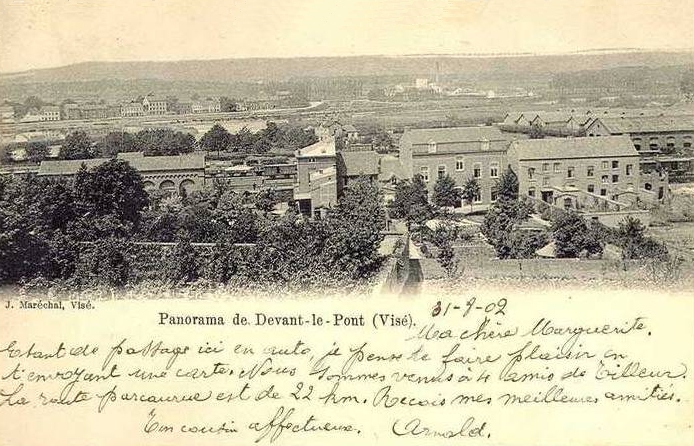 J. Maréchal, Visé.
Panorama de Devant-le-Pont (Visé).
31-9-02
Ma chère Marguerite.
Etant de passage ici en auto, je pense te faire plaisir en
t'envoyant une carte. Nous sommes venus à 4 amis de Tilleur.
La route parcourue est de 22 km. Reçois mes meilleures amitiés.
Ton cousin affectueux. Arnold.